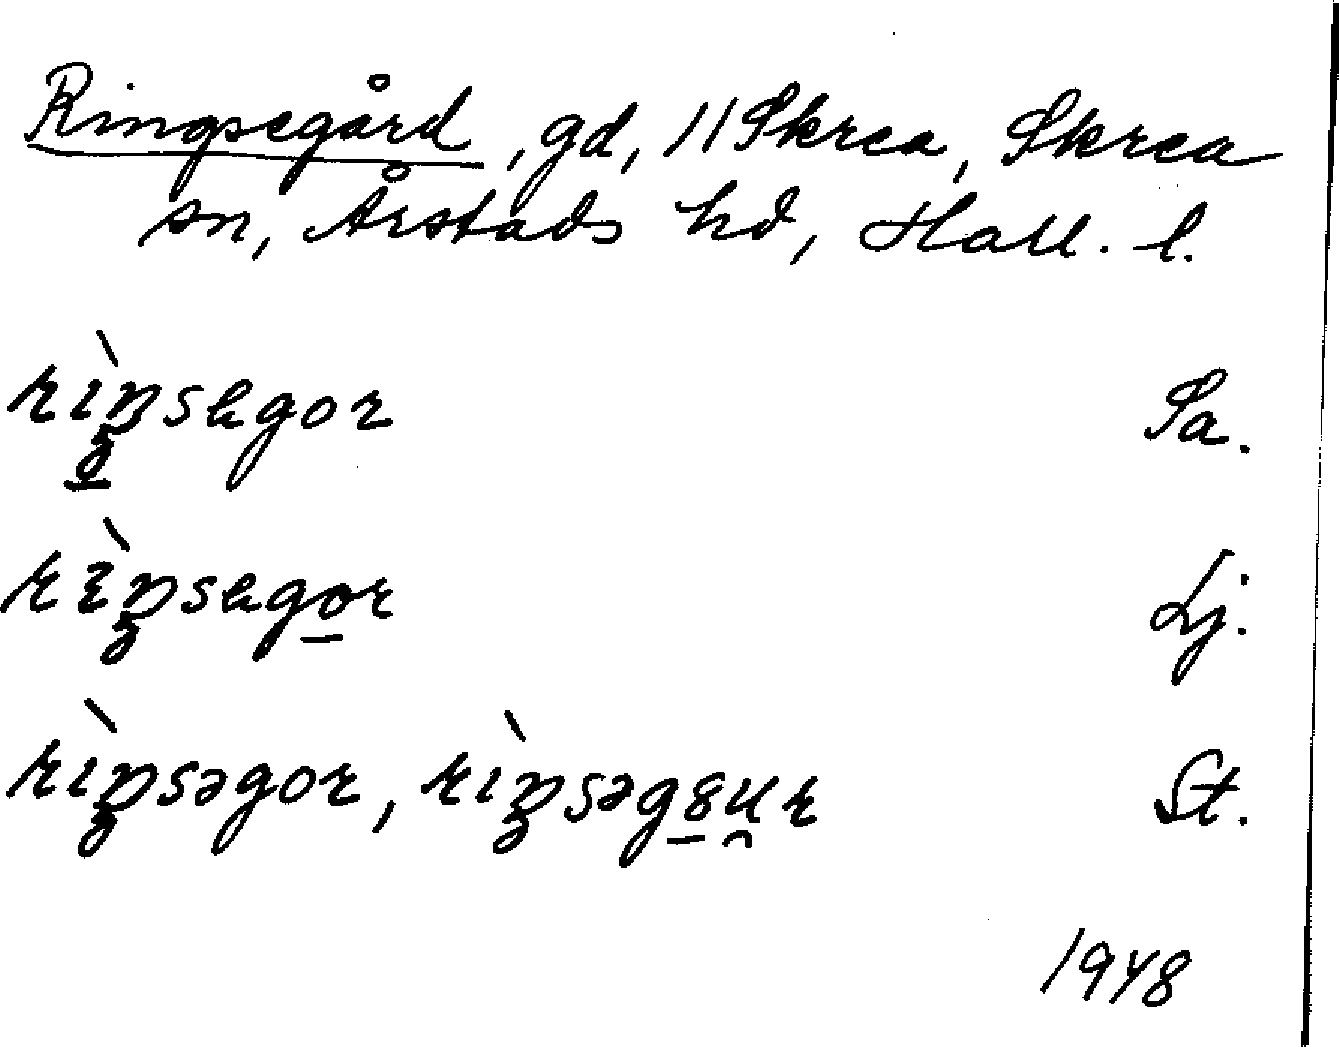 Ringsegård, gd, 11 Skrea, Skrea
sn, Årstads hd, Hall. l.
rìŋsegor Sa.
rìŋsegor Lj.
rìŋsəgor, rìŋsəg8ur St.
1948